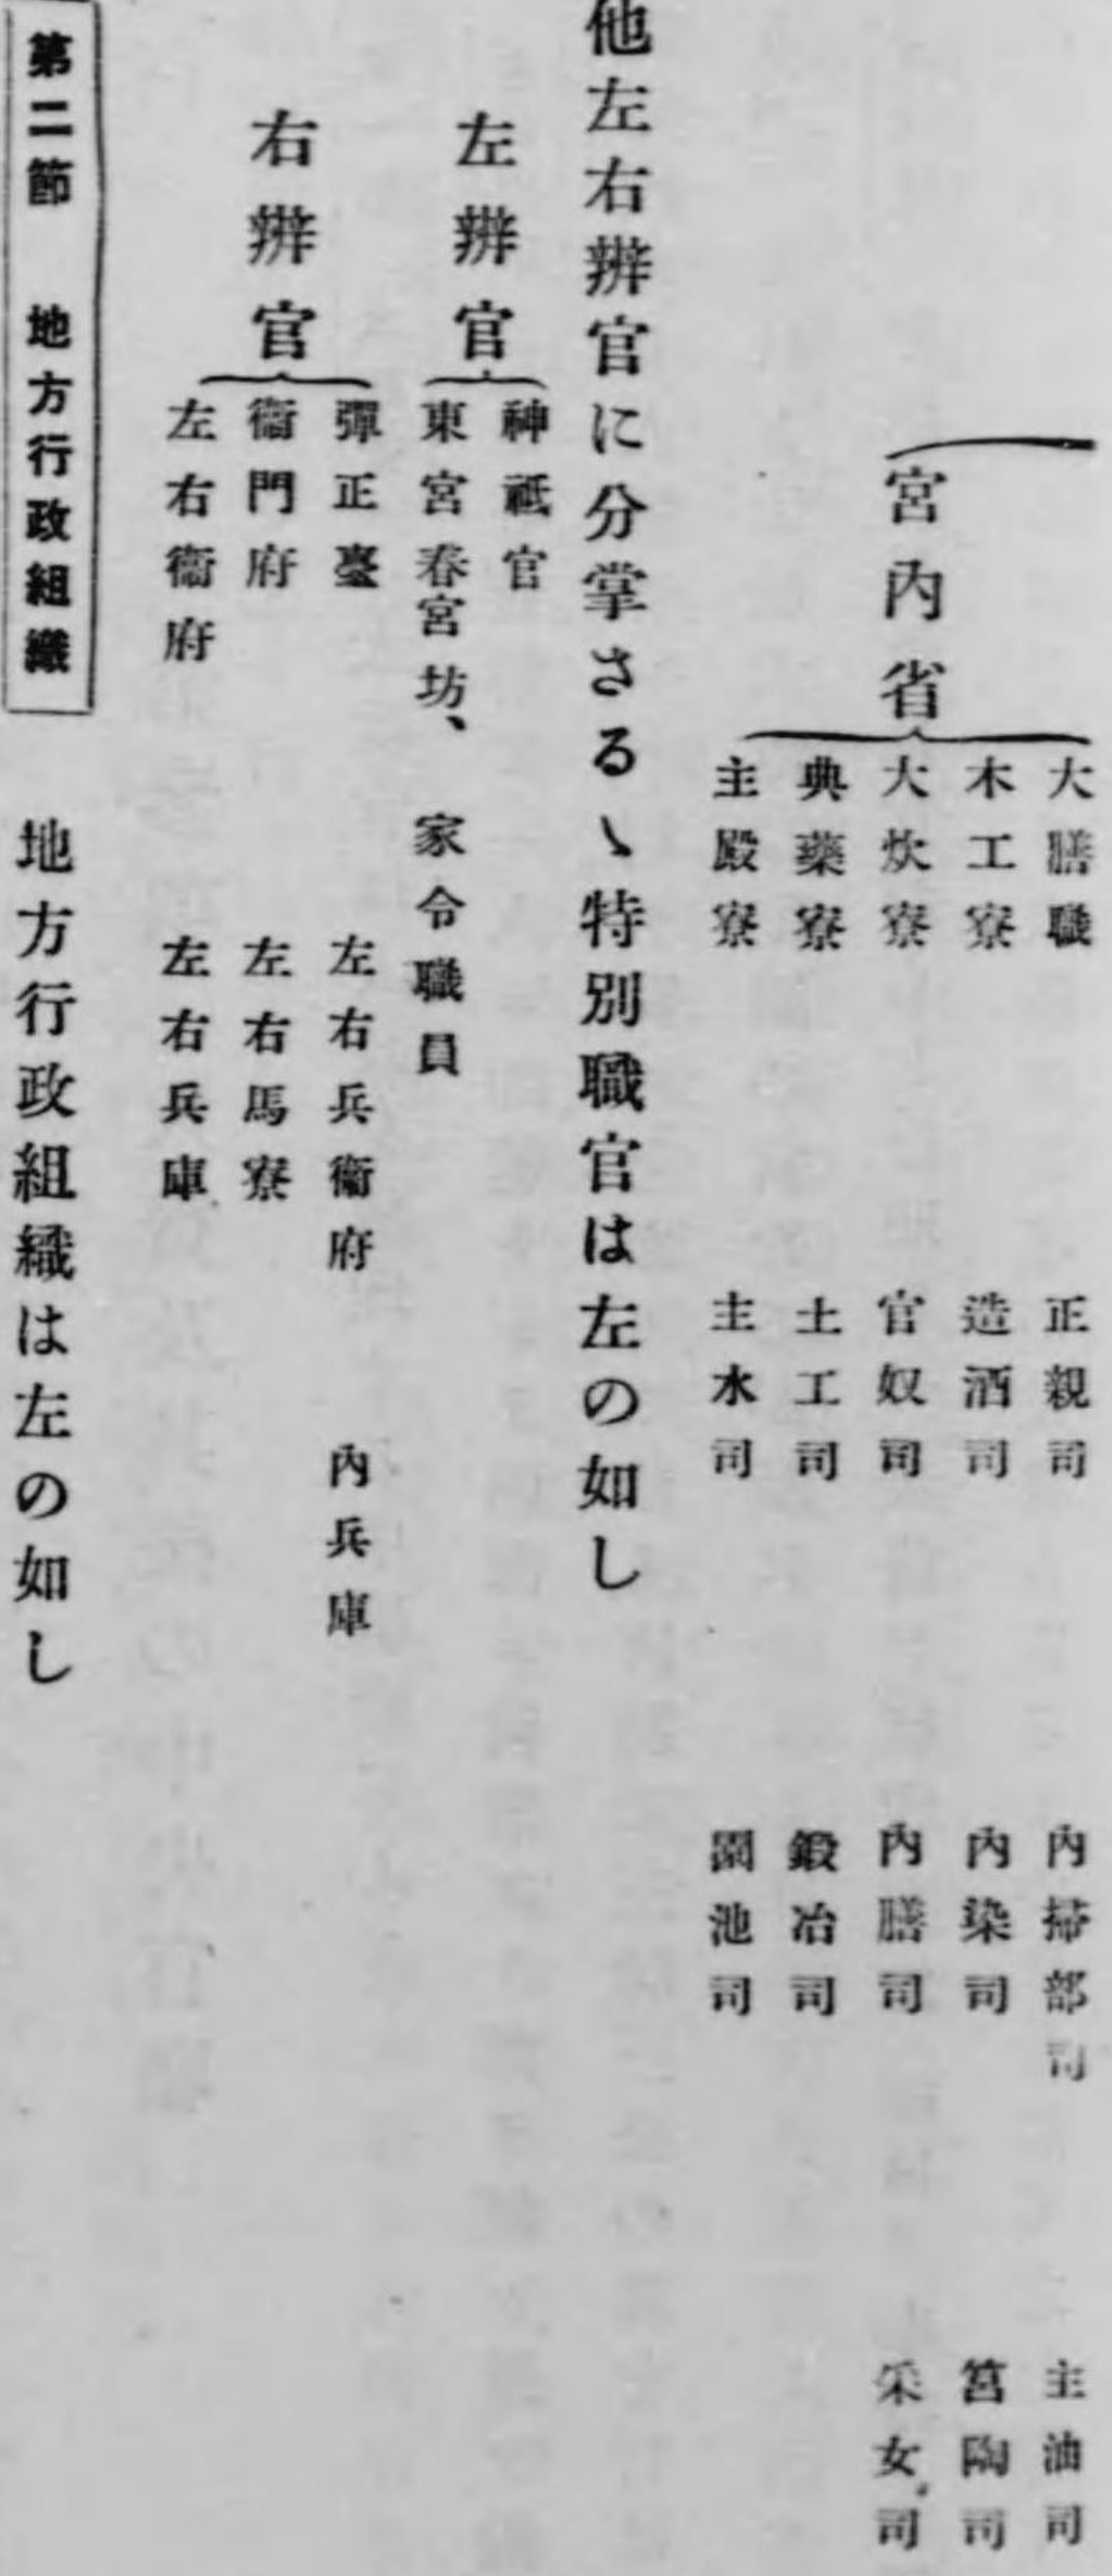 宮內省
大膳職 正親司 內掃部司 主油司
木工寮 造酒司 內染司 筥陶司
大炊寮 官奴司 內膳司 采女司
典藥寮 土工司 鍛冶司
主殿寮 主水司 園池司
他左右辨官に分掌さるゝ特別職官は左の如し
左辨官
神祇官
東宮春宮坊、家令職員
右辨官
彈正臺 左右兵衞府 內兵庫
衞門府 左右馬寮
左右衞府 左右兵庫
第二節 地方行政組織 地方行政組織は左の如し